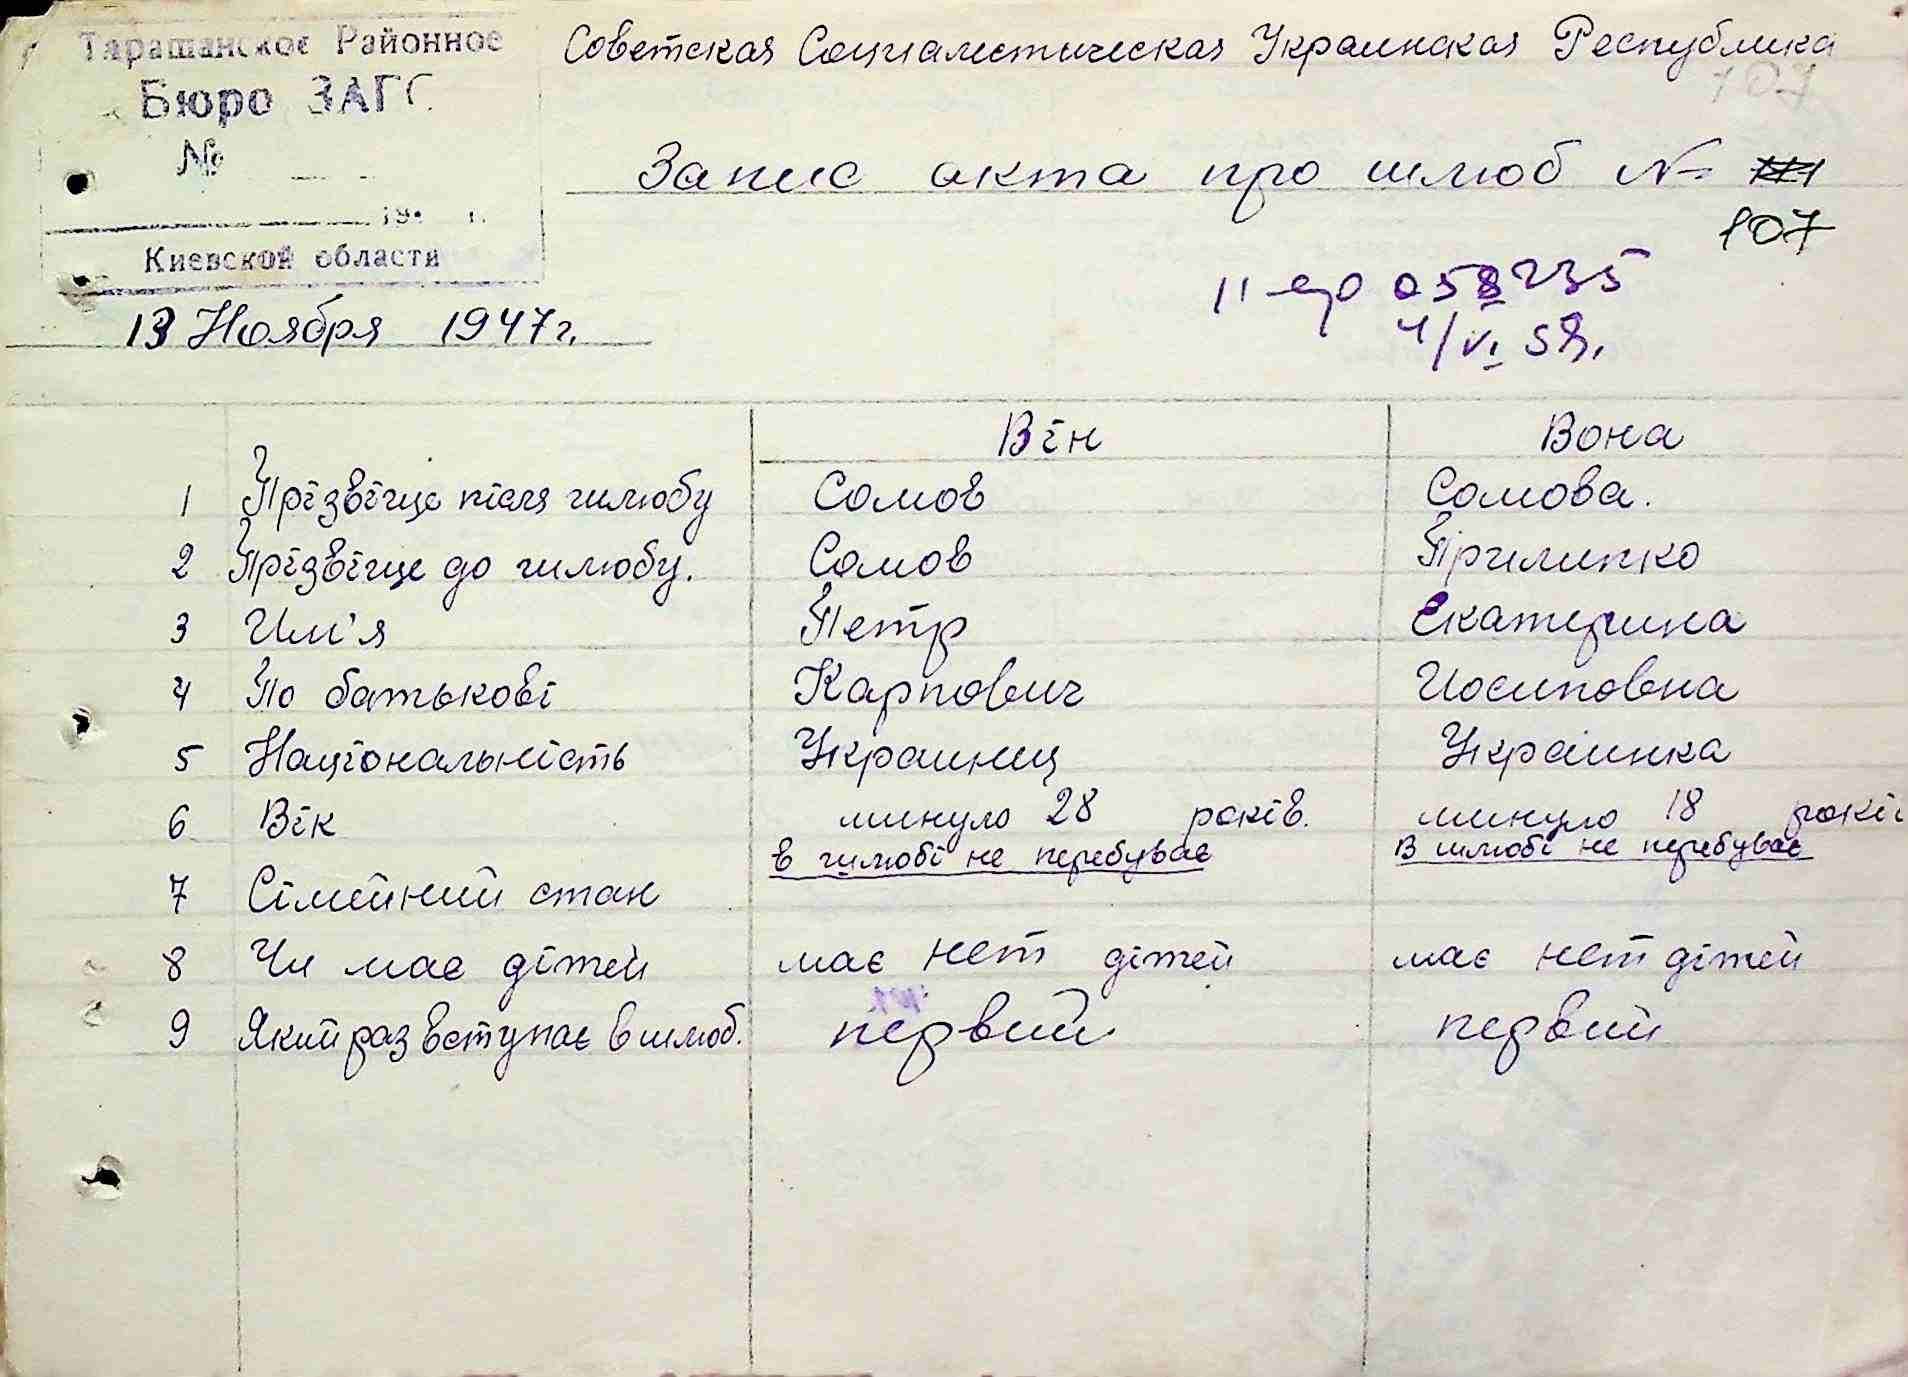 Таращанское Районное
Бюро ЗАГС
№
19 г.
Киевской области
Советская Социалистическая Украинская Республика
107
Запис акта про шлюб №
107
13 Ноября 1947 г.
058235
4/VI 58.
Він Вона
1 Прізвіще після шлюбу Сомов Сомова.
2 Прізвіще до шлюбу. Сомов Прилипко
3 Им'я Петр Екатерина
4 По батькові Карпович Иосиповна
5 Національність Украинец Украинка
6 Вік минуло 28 років. минуло 18 років
в шлюбі не перебуває В шлюбі не перебуває
7 Сімейний стан
8 Чи має дітей має нет дітей має нет дітей
9 Який раз вступає в шлюб. первий первий